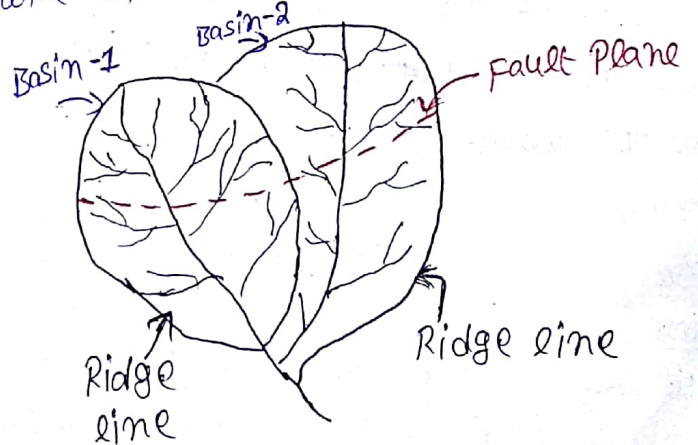 Basin-2
Basin-1
Fault Plane
Ridge line
Ridge
line